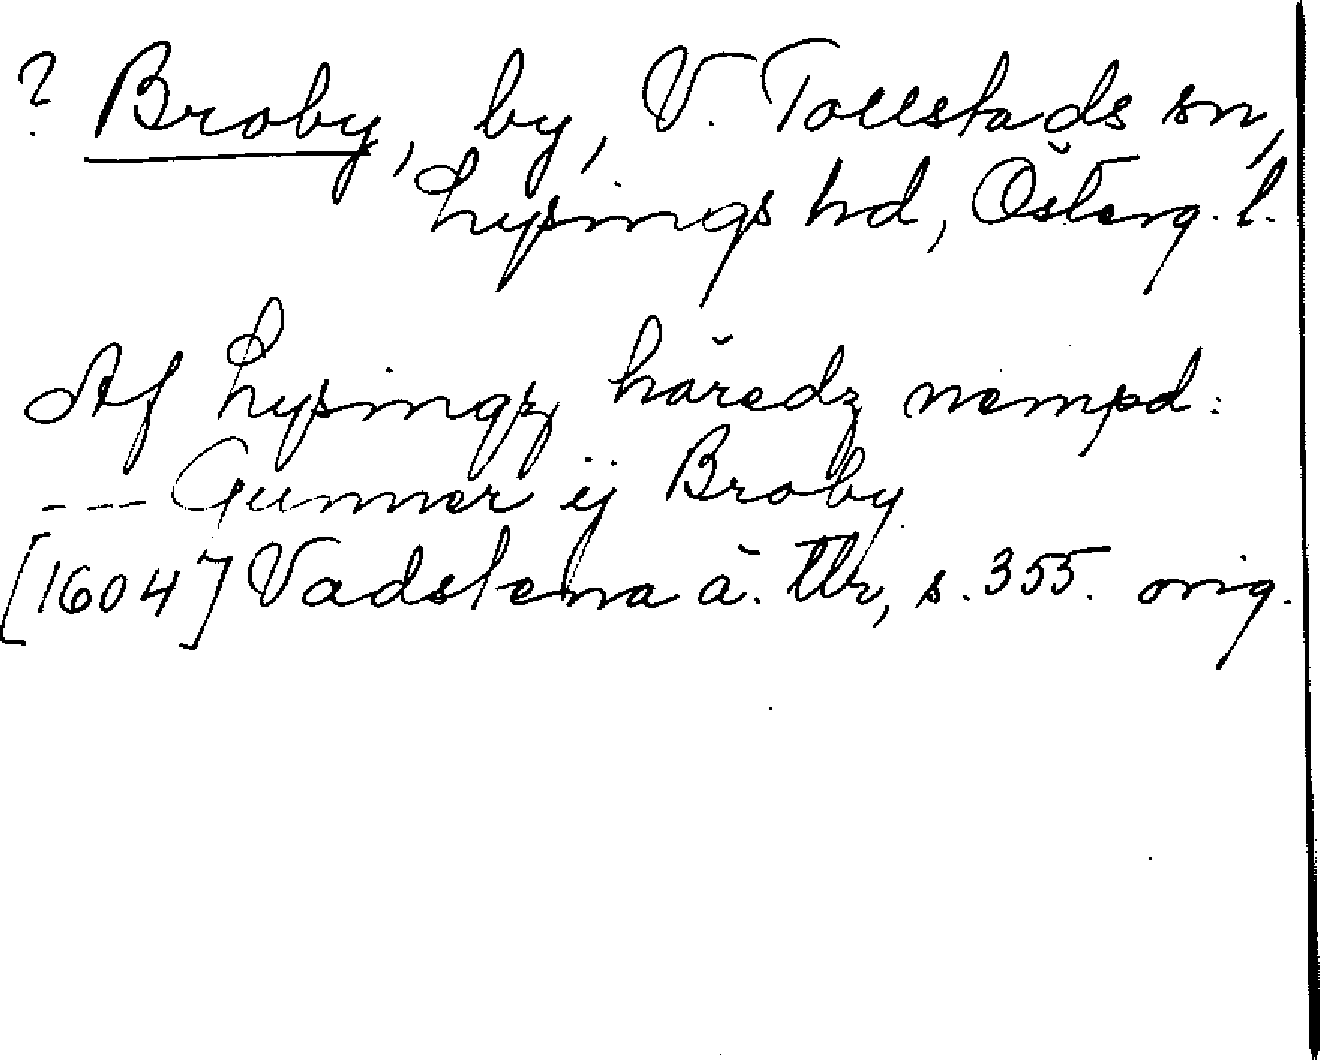 ? Broby, by, V. Tollstads sn,
Lysings hd, Österg. l.
Af Lysingz häredz nempd:
--- Gunner ij Broby
[1604] Vadstena ä. tb, s. 355. orig.